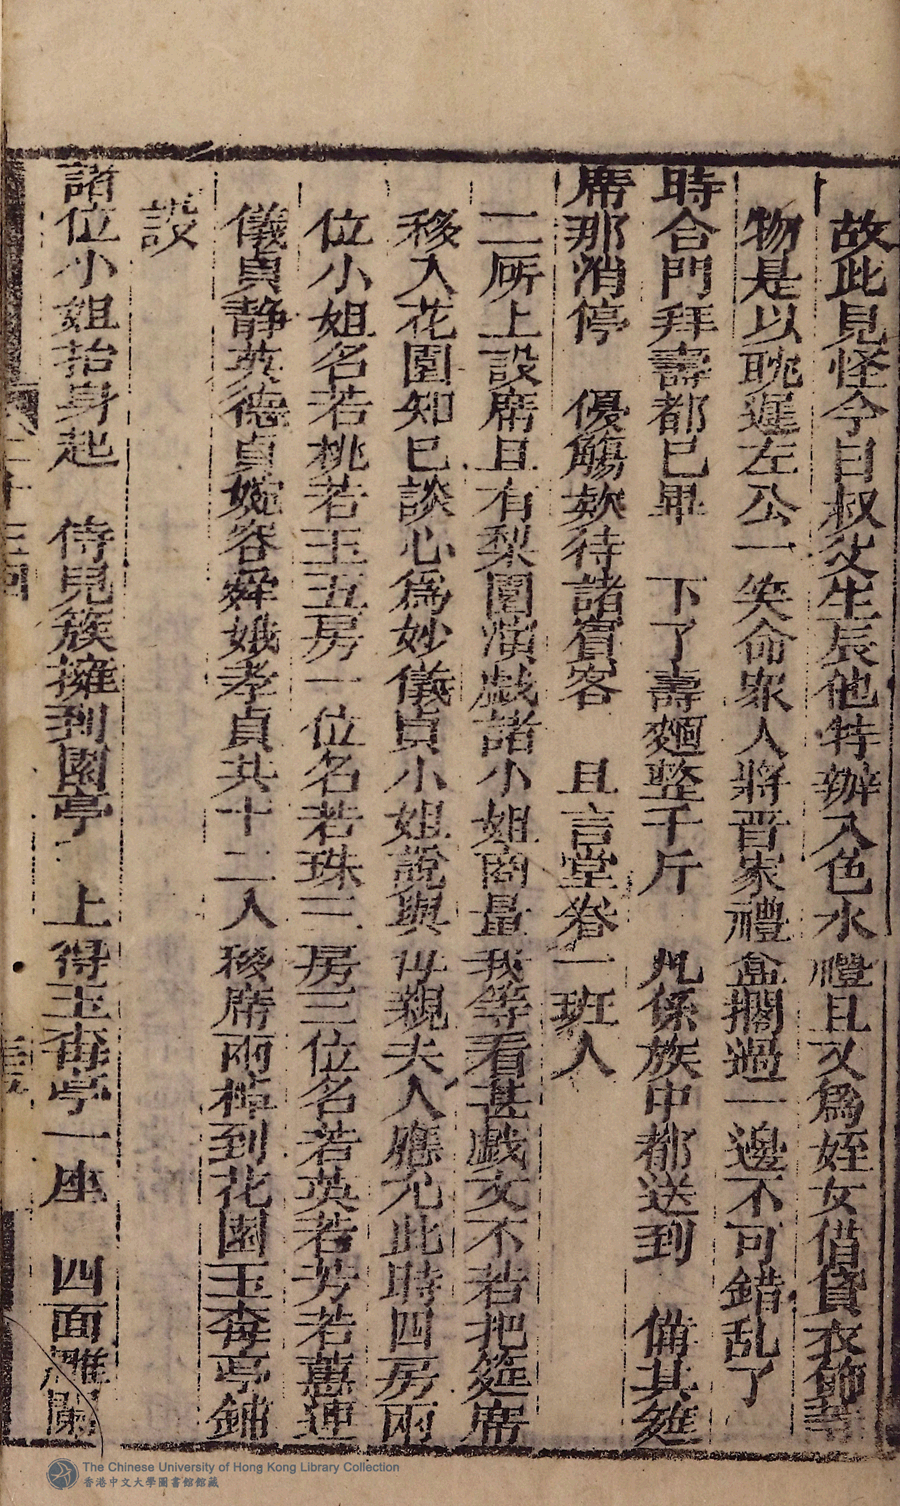 故此見怪今日叔父生辰他特辦入色水禮且又爲姪女借貸衣飾等
物是以耽遲左公一笑命眾人將晋家禮盒擱過一邊不可錯乱了
時合門拜壽都已畢　下了壽麵整千斤　凡係族中都送到　備其筵
席那消停　優觴欵待諸賔客　且言堂眷一班人
二厛上設席且有梨園演戯諸小姐商量我等看甚戯文不若把筵席
移入花園知己談心爲妙儀貞小姐說與母親夫人應允此時四房兩
位小姐名若桃若玉五房一位名若珠三房三位名若英若芳若蕙連
儀貞静英德貞婉容舜娥孝貞共十二人移席兩棹到花園玉梅亭鋪
設
諸位小姐抬身起　侍兒簇擁到園亭　上得玉梅亭一座　四面雕闌
The Chinese University of Hong Kong Library Collection
香港中文大學圖書館館藏